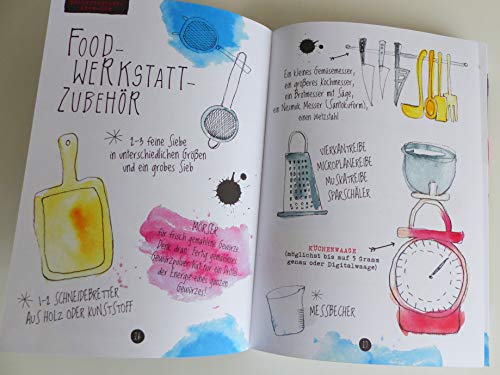 FOOD-
WERKSTATT-
ZUBEHÖR
2-3 feine Siebe
in unterschiedlichen Größen
und ein grobes Sieb
MÖRSER
Für frisch gemahlene Gewürze.
Denk dran: Fertig gemahlenes
Gewürzpulver hat nur ein Drittel
der Energie eines ganzen
Gewürzes!
1-2 SCHNEIDEBRETTER
AUS HOLZ ODER KUNSTSTOFF
Ein kleines Gemüsemesser,
ein größeres Kochmesser,
ein Brotmesser mit Säge,
ein Nesmuk Messer (Santokuform),
einen Wetzstahl
VIERKANTREIBE
MICROPLANEREIBE
MUSKATREIBE
SPARSCHÄLER
KÜCHENWAAGE
(möglichst bis auf 5 Gramm
genau oder Digitalwaage)
MESSBECHER